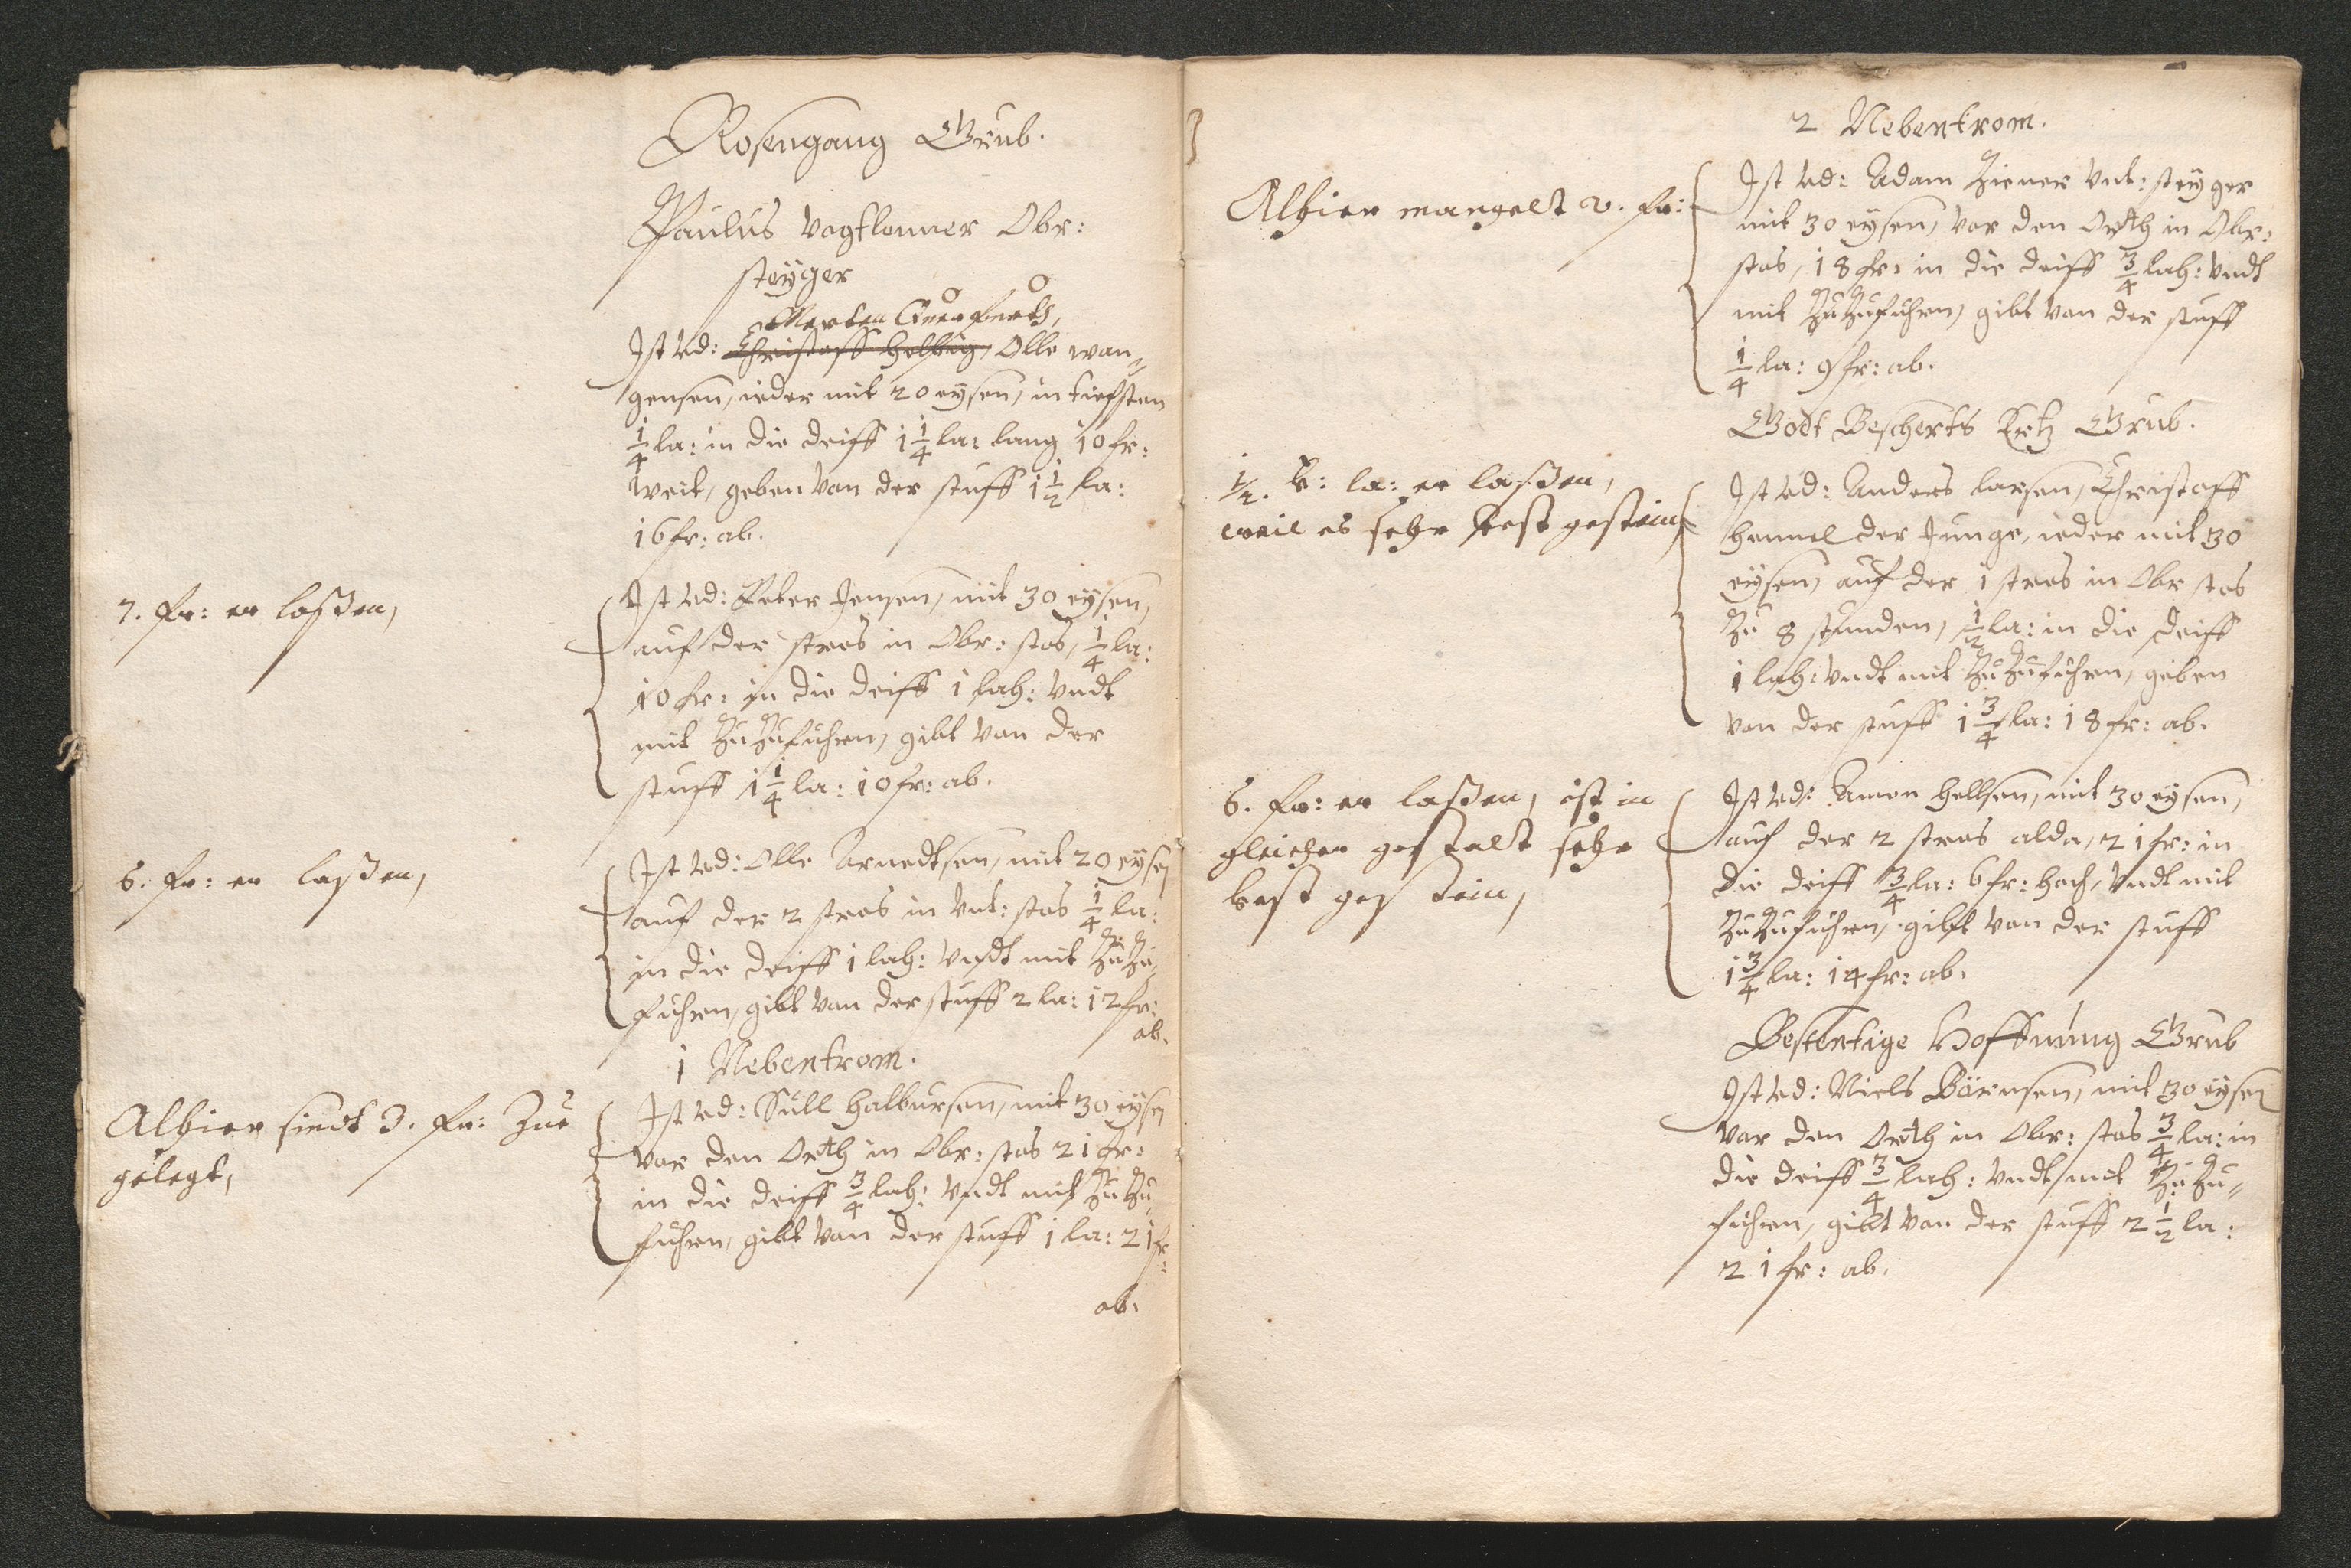 Rosengang Grub.
Paulus Vogtlenner Obr:
steyger
Merten Querfurth,
Ist Ad: Christoff Helbig, Olle wan=
gensen, ieder mit 20 eysen, in tiefsten
1/4 la: in die deiff 1 1/4 la: lang 10 fr:
weit, geben von der stuff 1 1/2 la:
16 fr: ab.
7. fr: er laßen,
Ist Ad: Peter Jensen, mit 30 eysen,
auf der stros in Obr: stos, 1/4 la:
10 fr: in die deiff 1 lah: undt
mit ZuZufuhren, gibt von der
stuff 1 1/4 la: 10 fr: ab.
6. fr: er laßen,
Ist Ad: Olle Arnedtsen, mit 20 eysen
auf der 2 stros in Unt: stos 1/4 la:
in die deiff 1 lah: Undt mit ZuZu
fuhren, gibt von der stuff 2 la: 12 fr:
ab.
1 Nebentrom.
Alhier sindt 3. fr: Zue
gelegt,
Ist Ad: Sull Halbursen, mit 30 eysen
vor den Orth in Obr: stos 21 fr:
in die deiff 3/4 lah: Undt mit ZuZu
fuhren, gibt von der stuff 1 la: 21 fr:
ab.
2 Nebentrom.
Alhier mangelt 2. fr:
Ist Ad: Adam Ziener Unt: steyger
mit 30 eysen, vor den Orth in Obr:
stos, 18 fr: in die deiff 3/4 lah: Undt
mit ZuZufuhren, gibt von der stuff
1/4 la: 9 fr: ab.
Godt Bescherts Ertz Grub.
1/2. la: er laßen,
weil es sehr fest gestein
Ist Ad: Anders Larsen, Christoff
Hennel der Junge, ieder mit 30
eysen, auf der 1 stros in Obr stos
Zu 8 stunden, 1/2 la: in die deiff
1 lah: Undt mit ZuZufuhren, geben
von der stuff 1 3/4 la: 18 fr: ab.
6. fr: er laßen, ist in
gleicher gestalt sehr
fest gestein,
Ist Ad: Amon Hellsen, mit 30 eysen,
auf der 2 stros alda, 21 fr: in
die deiff 3/4 la: 6 fr: hoch, Undt mit
ZuZufuhren, gibt von der stuff
1 3/4 la: 14 fr: ab.
Bestentige Hoffnung Grub
Ist Ad: Niels Börnsen, mit 30 eysen
vor den Orth in Obr: stos 3/4 la: in
die deiff 3/4 lah: Undt mit ZuZu=
fuhren, gibt von der stuff 2 1/2 la:
21 fr: ab.